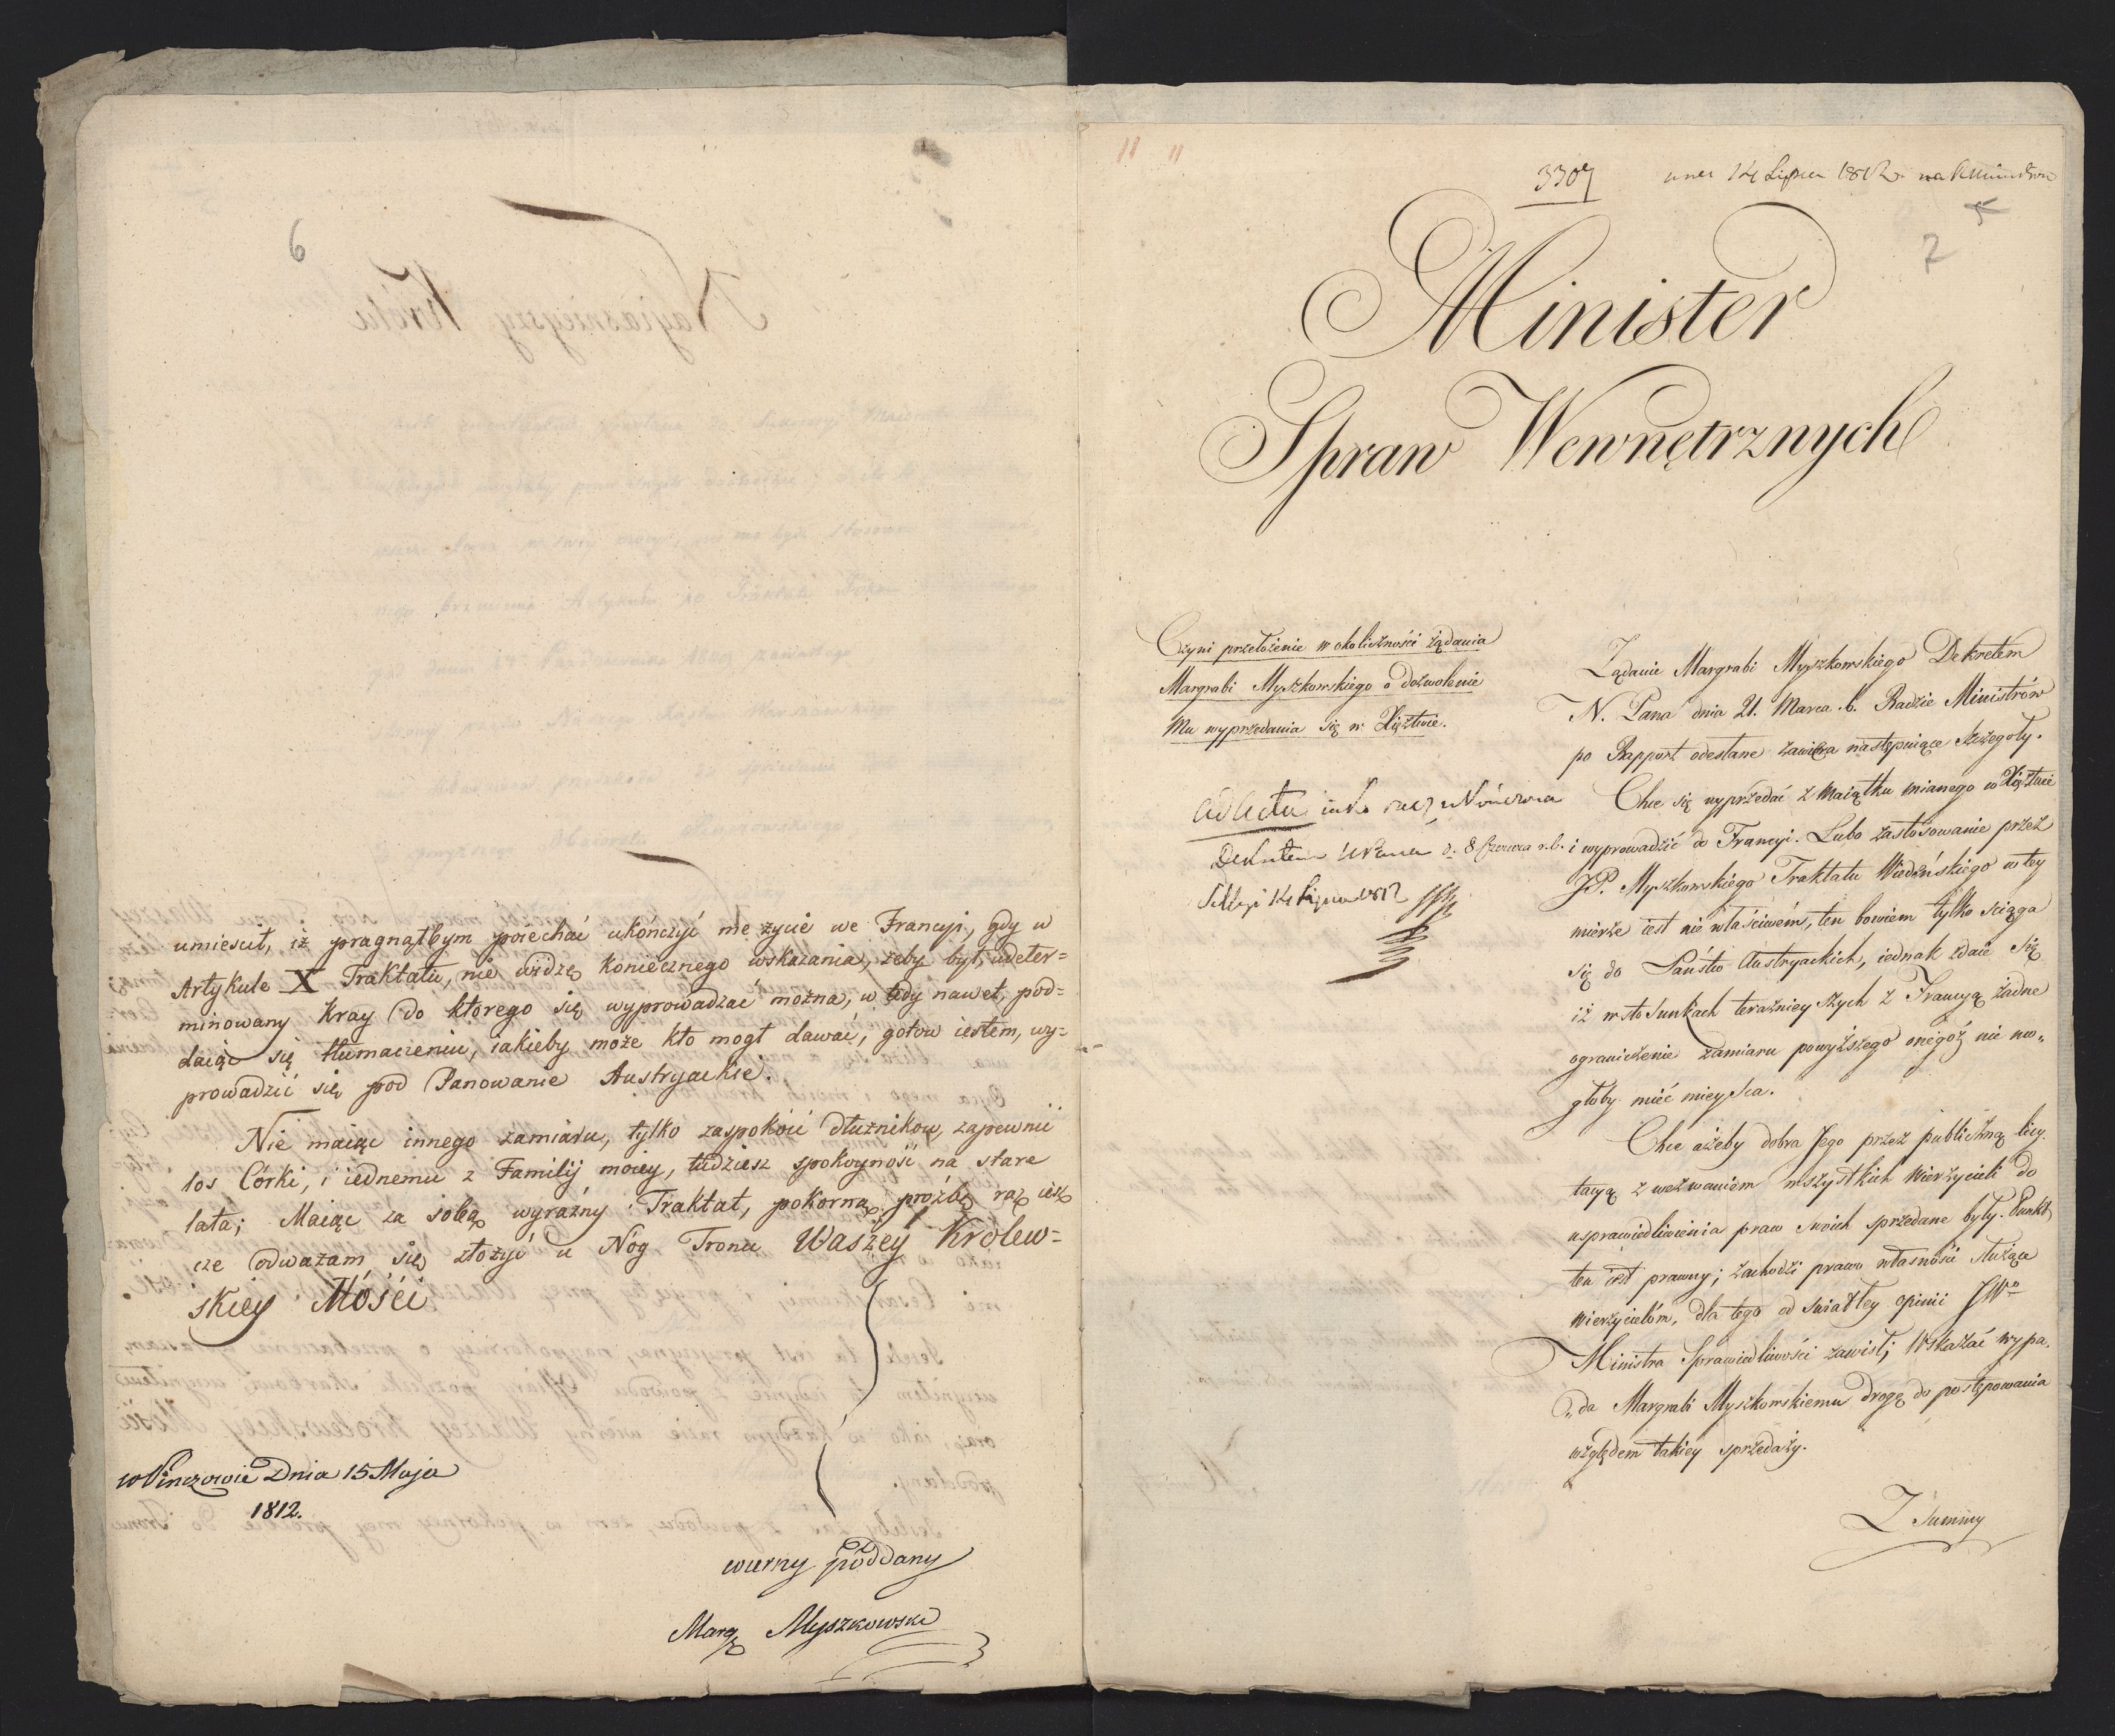 6
umiescił, iż pragnąłbym poiechać ukończyć me życie we Francyi, gdy w
Artykule X Traktatu, nie widzę koniecznego wskazania, żeby był, udeter=
minowany Kray do ktorego się wyprowadzać można, w tedy nawet, pod=
daiąc się tłumaczeniu, iakieby może kto mogł dawać, gotow iestem, wy=
prowadzić się pod Panowanie Austryackie.
Nie maiąc innego zamiaru, tylko zaspokoić dłużnikow, zapewnić
los Córki, i iednemu z Familij moiey, tudziesz spokoyność na stare
lata; Maiąc za sobą wyraźny Traktat, pokorną proźbę raz iesz
cze odważam się złożyć u Nóg Tronu Waszey Królew=
skiey Mości
w Pinczowie Dnia 15 Maja
1812.
wierny poddany
Marg Myszkowski
11 11
3307
14 Lipca 1812
7
Minister
Spraw Wewnętrznych
Czyni przełożenie w okoliczności żądania
Margrabi Myszkowskiego o dozwolenie
Mu wyprzedania się w Xięztwie.
ad acta iako
Dekretem d. 8 Czerwca r.b.
14 Lipca 1812
Żądanie Margrabi Myszkowskiego Dekretem
N. Pana dnia 21. Marca r.b. Radzie Ministrów
po Rapport odesłane zawiera następuiące szczegoły.
Chce się wyprzedać z Maiątku mianego w Xięztwie
i wyprowadzić do Francyi. Lubo zastosowanie przez
JP. Myszkowskiego Traktatu Wiedeńskiego w tey
mierze iest nie właściwém, ten bowiem tylko ściąga
się do Państw Austryackich, iednak zdaie się
iż w stosunkach teraźnieyszych z Francyą żadne
ograniczenie zamiaru powyższego onegóż nie mo„
głoby mieć mieysca.
Chce ażeby dobra Jego przez publiczną licy
tacyą z wezwaniem wszystkich Wierzycieli do
usprawiedliwienia praw swoich sprzedane były. Punkt
ten iest prawny; zachodzi prawo własności służące
wierzycielom, dla tego od światłey opinii JWo
Ministra Sprawiedliwości zawisł; Wskazać wypa„
„da Margrabi Myszkowskiemu drogę do postępowania
względem takiey sprzedaży.